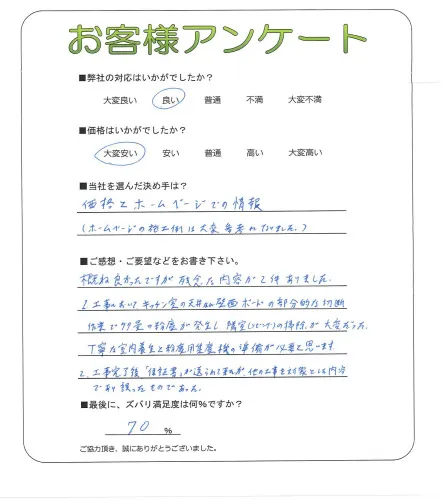 お客様アンケート
■弊社の対応はいかがでしたか？
大変良い 良い 普通 不満 大変不満
■価格はいかがでしたか？
大変安い 安い 普通 高い 大変高い
■当社を選んだ決め手は？
価格とホームページでの情報
(ホームページの施工例は大変参考になりました。)
■ご感想・ご要望などをお書き下さい。
概ね良かったですが残念な内容が2件ありました。
1. 工事においてキッチン室の天井 壁面ボードの部分的な切断
作業で多量の粉塵が発生し 隣室(リビング)の掃除が大変だった。
丁寧な室内養生と粉塵用集塵機の準備が必要と思います
2. 工事完了後「保証書」が送られてきたが、他の工事を対象とした内容
であり誤ったものであった。
■最後に、ズバリ満足度は何％ですか？
70 %
ご協力頂き、誠にありがとうございました。